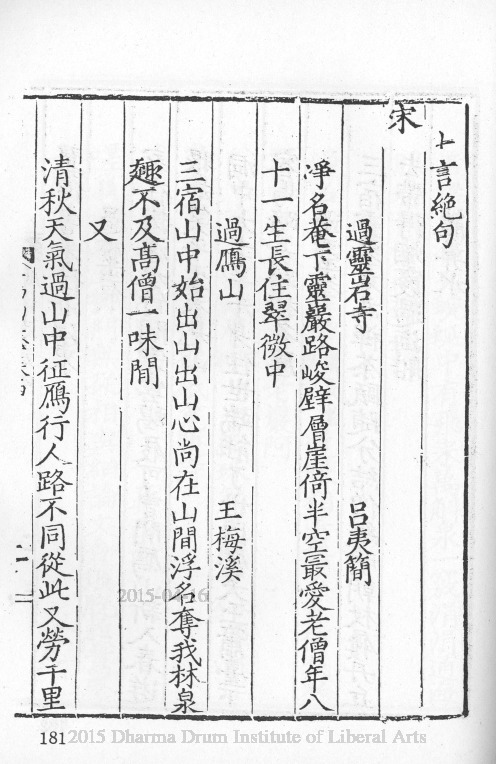 七言絶句
宋
過靈岩寺 吕夷簡
凈名菴下靈巖路峻壁層崖倚半空最愛老僧年八
十一生長住翠微中
過鴈山 王梅溪
三宿山中始出山出山心尚在山間浮名奪我林泉
趣不及髙僧一味閒
又
清秋天氣過山中征鴈行人路不同從此又勞千里
181
2015 Dharma Drum Institute of Liberal Arts